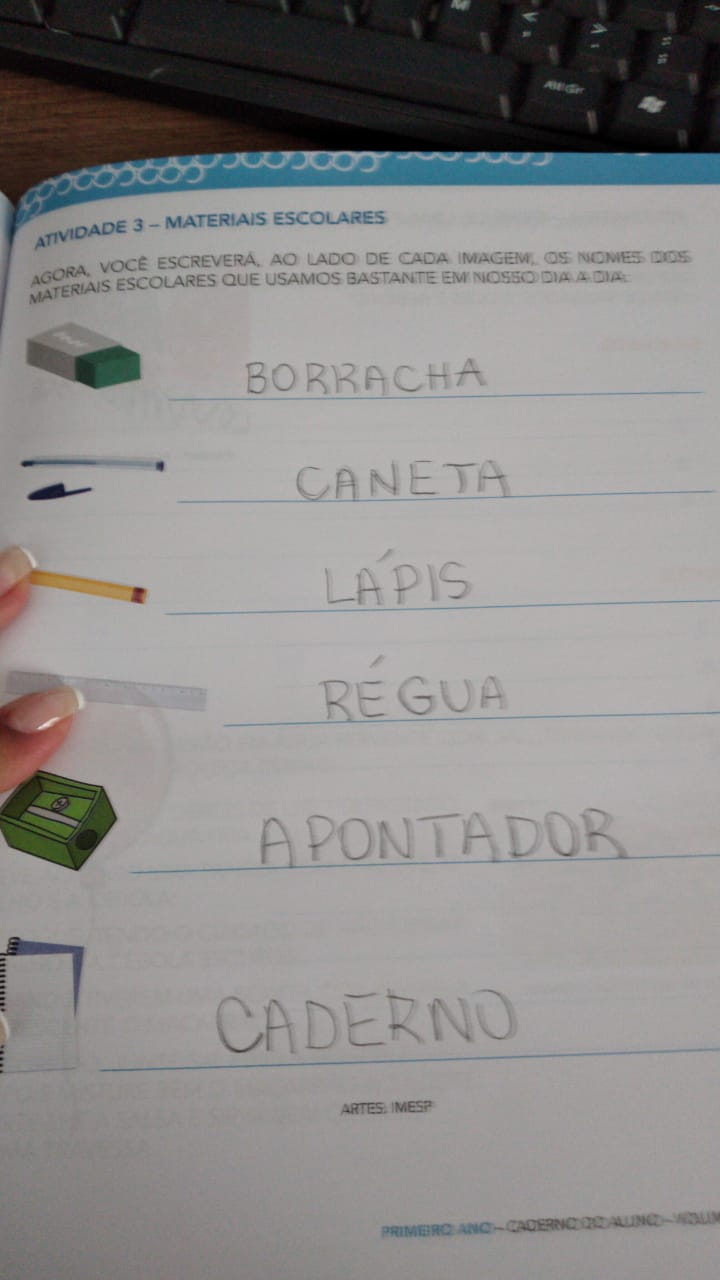 ATIVIDADE 3 – MATERIAIS ESCOLARES
AGORA, VOCÊ ESCREVERÁ, AO LADO DE CADA IMAGEM, OS NOMES DOS
MATERIAIS ESCOLARES QUE USAMOS BASTANTE EM NOSSO DIA A DIA:
BORRACHA
CANETA
LÁPIS
RÉGUA
APONTADOR
CADERNO
ARTES: IMESP
PRIMEIRO ANO – CADERNO DO ALUNO –